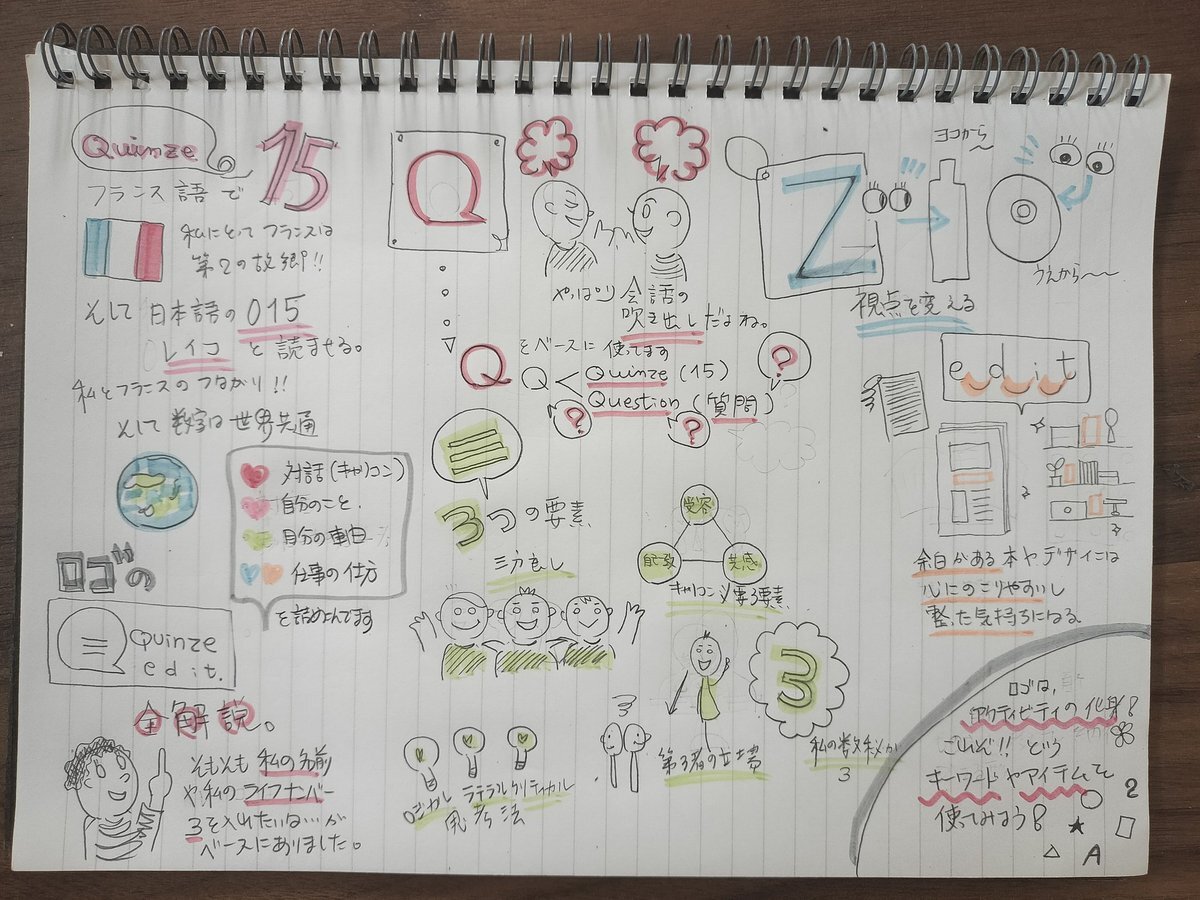 Quinze
15
フランス語で
私にとってフランスは
第2の故郷!!
そして日本語の015
レイコと読ませる。
私とフランスのつながり!!
そして数字は世界共通
対話(キャリコン)
自分のこと
自分の車由
仕事の仕方
を詰めこんでます
ロゴの
Quinze
edit.
全解説。
そもそも私の名前
や私のライフナンバー
3を入れたいな…が
ベースにありました。
Q
やっぱり会話の
吹き出しだよね。
Q をベースに使ってます
Q < Quinze (15)
Question (質問)
?
?
?
3つの要素
三方よし
受容
自己一致
共感
キャリコン必要3要素
3
第3者の立場
3
私の数秘が
3
ロジカル ラテラル クリティカル
思考法
Z
ヨコから〜
うえから〜〜
視点を変える
edit
余白がある本やデザインは
心にのこりやすいし
整った気持ちになる
ロゴは、
アクティビティの化身!
これぞ!!という
キーワードやアイテムを
使ってみよう!
2
A